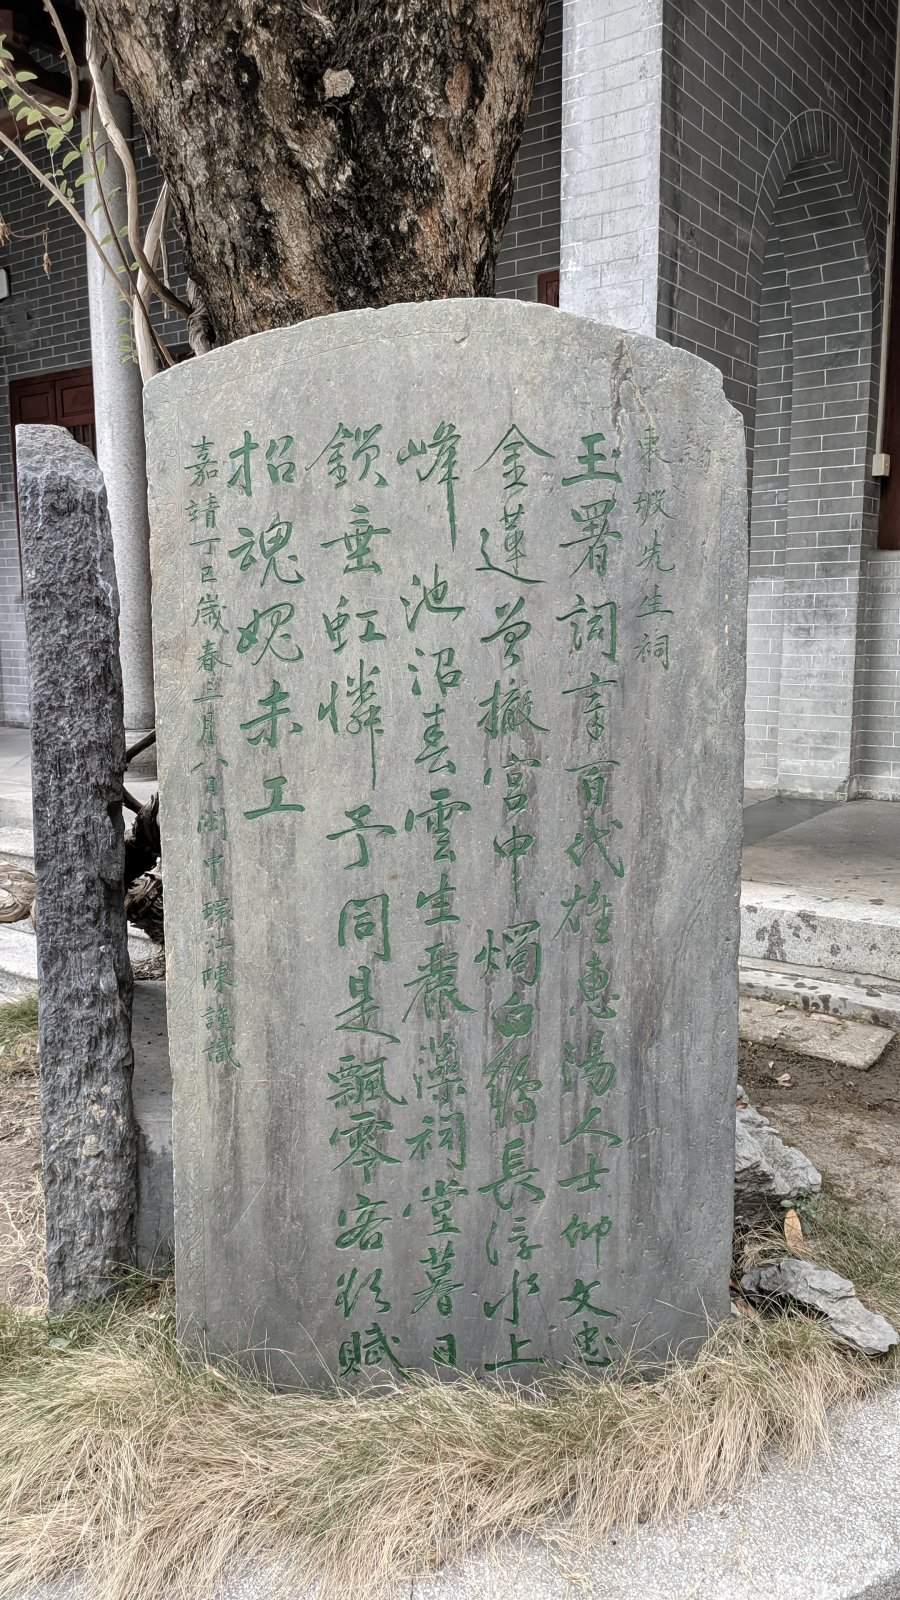 謁
東坡先生祠
玉署詞章百代雄惠陽人士仰文忠
金蓮曾撤宮中燭白鶴長浮水上
峰池沼春雲生麗藻祠堂暮日
鎖垂虹憐予同是飄零客欲賦
招魂媿未工
嘉靖丁巳歲春三月八日閩中環江陳謹識